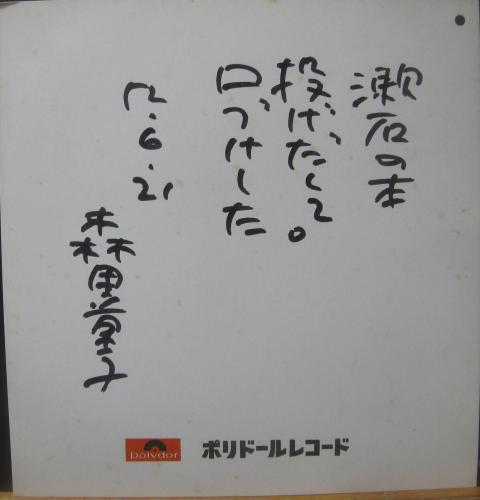 漱石の本
投げだして。
口づけした
72.6.21
森田童子
Polydor ポリドールレコード